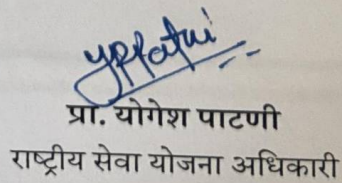 YPPatni
प्रा. योगेश पाटणी
राष्ट्रीय सेवा योजना अधिकारी